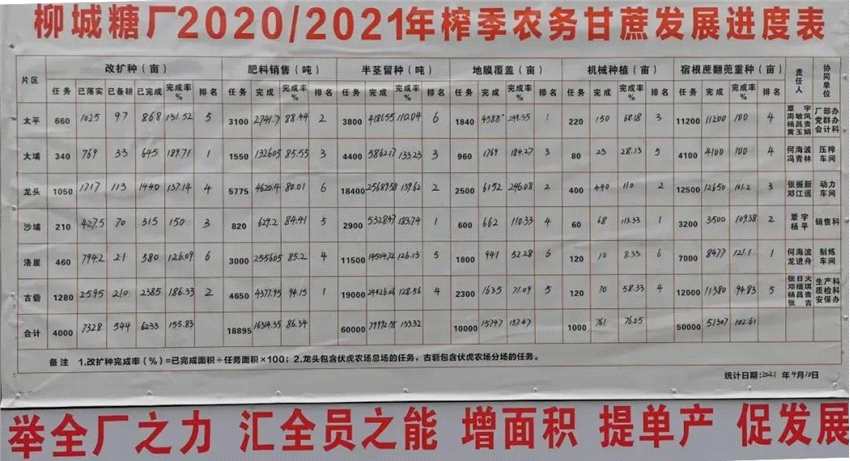 柳城糖厂2020/2021年榨季农务甘蔗发展进度表
片区 改扩种（亩） 肥料销售（吨） 半茎留种（吨） 地膜覆盖（亩） 机械种植（亩） 宿根蔗翻蔸重种（亩） 责任人 协同单位
任务 已落实 已备耕 已完成 完成率% 排名 任务 完成 完成率% 排名 任务 完成 完成率% 排名 任务 完成 完成率% 排名 任务 完成 完成率% 排名 任务 完成 完成率% 排名
太平 660 1025 97 868 131.52 5 3100 2741.7 88.44 2 3800 110.04 6 1840 1 220 150 68.18 3 11200 11200 100 4 覃宇 周敏凤 杨昌贵 黄玉娟 厂部办 党群办 会计科
大埔 340 769 33 645 189.71 1 1550 1326.05 85.55 3 4400 5862.17 133.23 3 960 1769 184.27 3 80 23 28.13 5 4100 4100 100 4 何海波 冯青林 压榨车间
龙头 1050 1717 113 1440 137.14 4 5775 4620.4 80.01 6 18400 139.62 2 2500 6152 246.08 2 400 440 110 2 12500 12650 101.2 3 张振新 邓江遥 动力车间
沙埔 210 427.5 70 315 150 3 820 84.41 5 2900 183.74 1 600 662 110.33 4 60 68 113.33 1 3200 3500 109.38 2 覃宇 杨平 销售科
洛崖 460 794.2 21 580 126.09 6 3000 2556.05 85.2 4 11500 126.13 5 1800 941 52.28 6 120 10 8.33 6 7000 8477 121.1 1 何海波 龙进舟 制炼车间
古砦 1280 2595 210 2385 186.33 2 4650 4377.95 94.15 1 19000 128.56 4 2300 1635 71.09 5 120 70 58.33 4 12000 11380 94.83 5 张日火 杨昌贵 张吉 生产科 质检科 安保办
合计 4000 7328 544 6233 155.83 18895 86.34 60000 133.32 10000 15747 157.47 1000 761 76.25 50000 51307 102.61
备注 1.改扩种完成率（%）=已完成面积÷任务面积×100；2.龙头包含伏虎农场总场的任务，古砦包含伏虎农场分场的任务。
统计日期:2021年4月10日
举全厂之力 汇全员之能 增面积 提单产 促发展